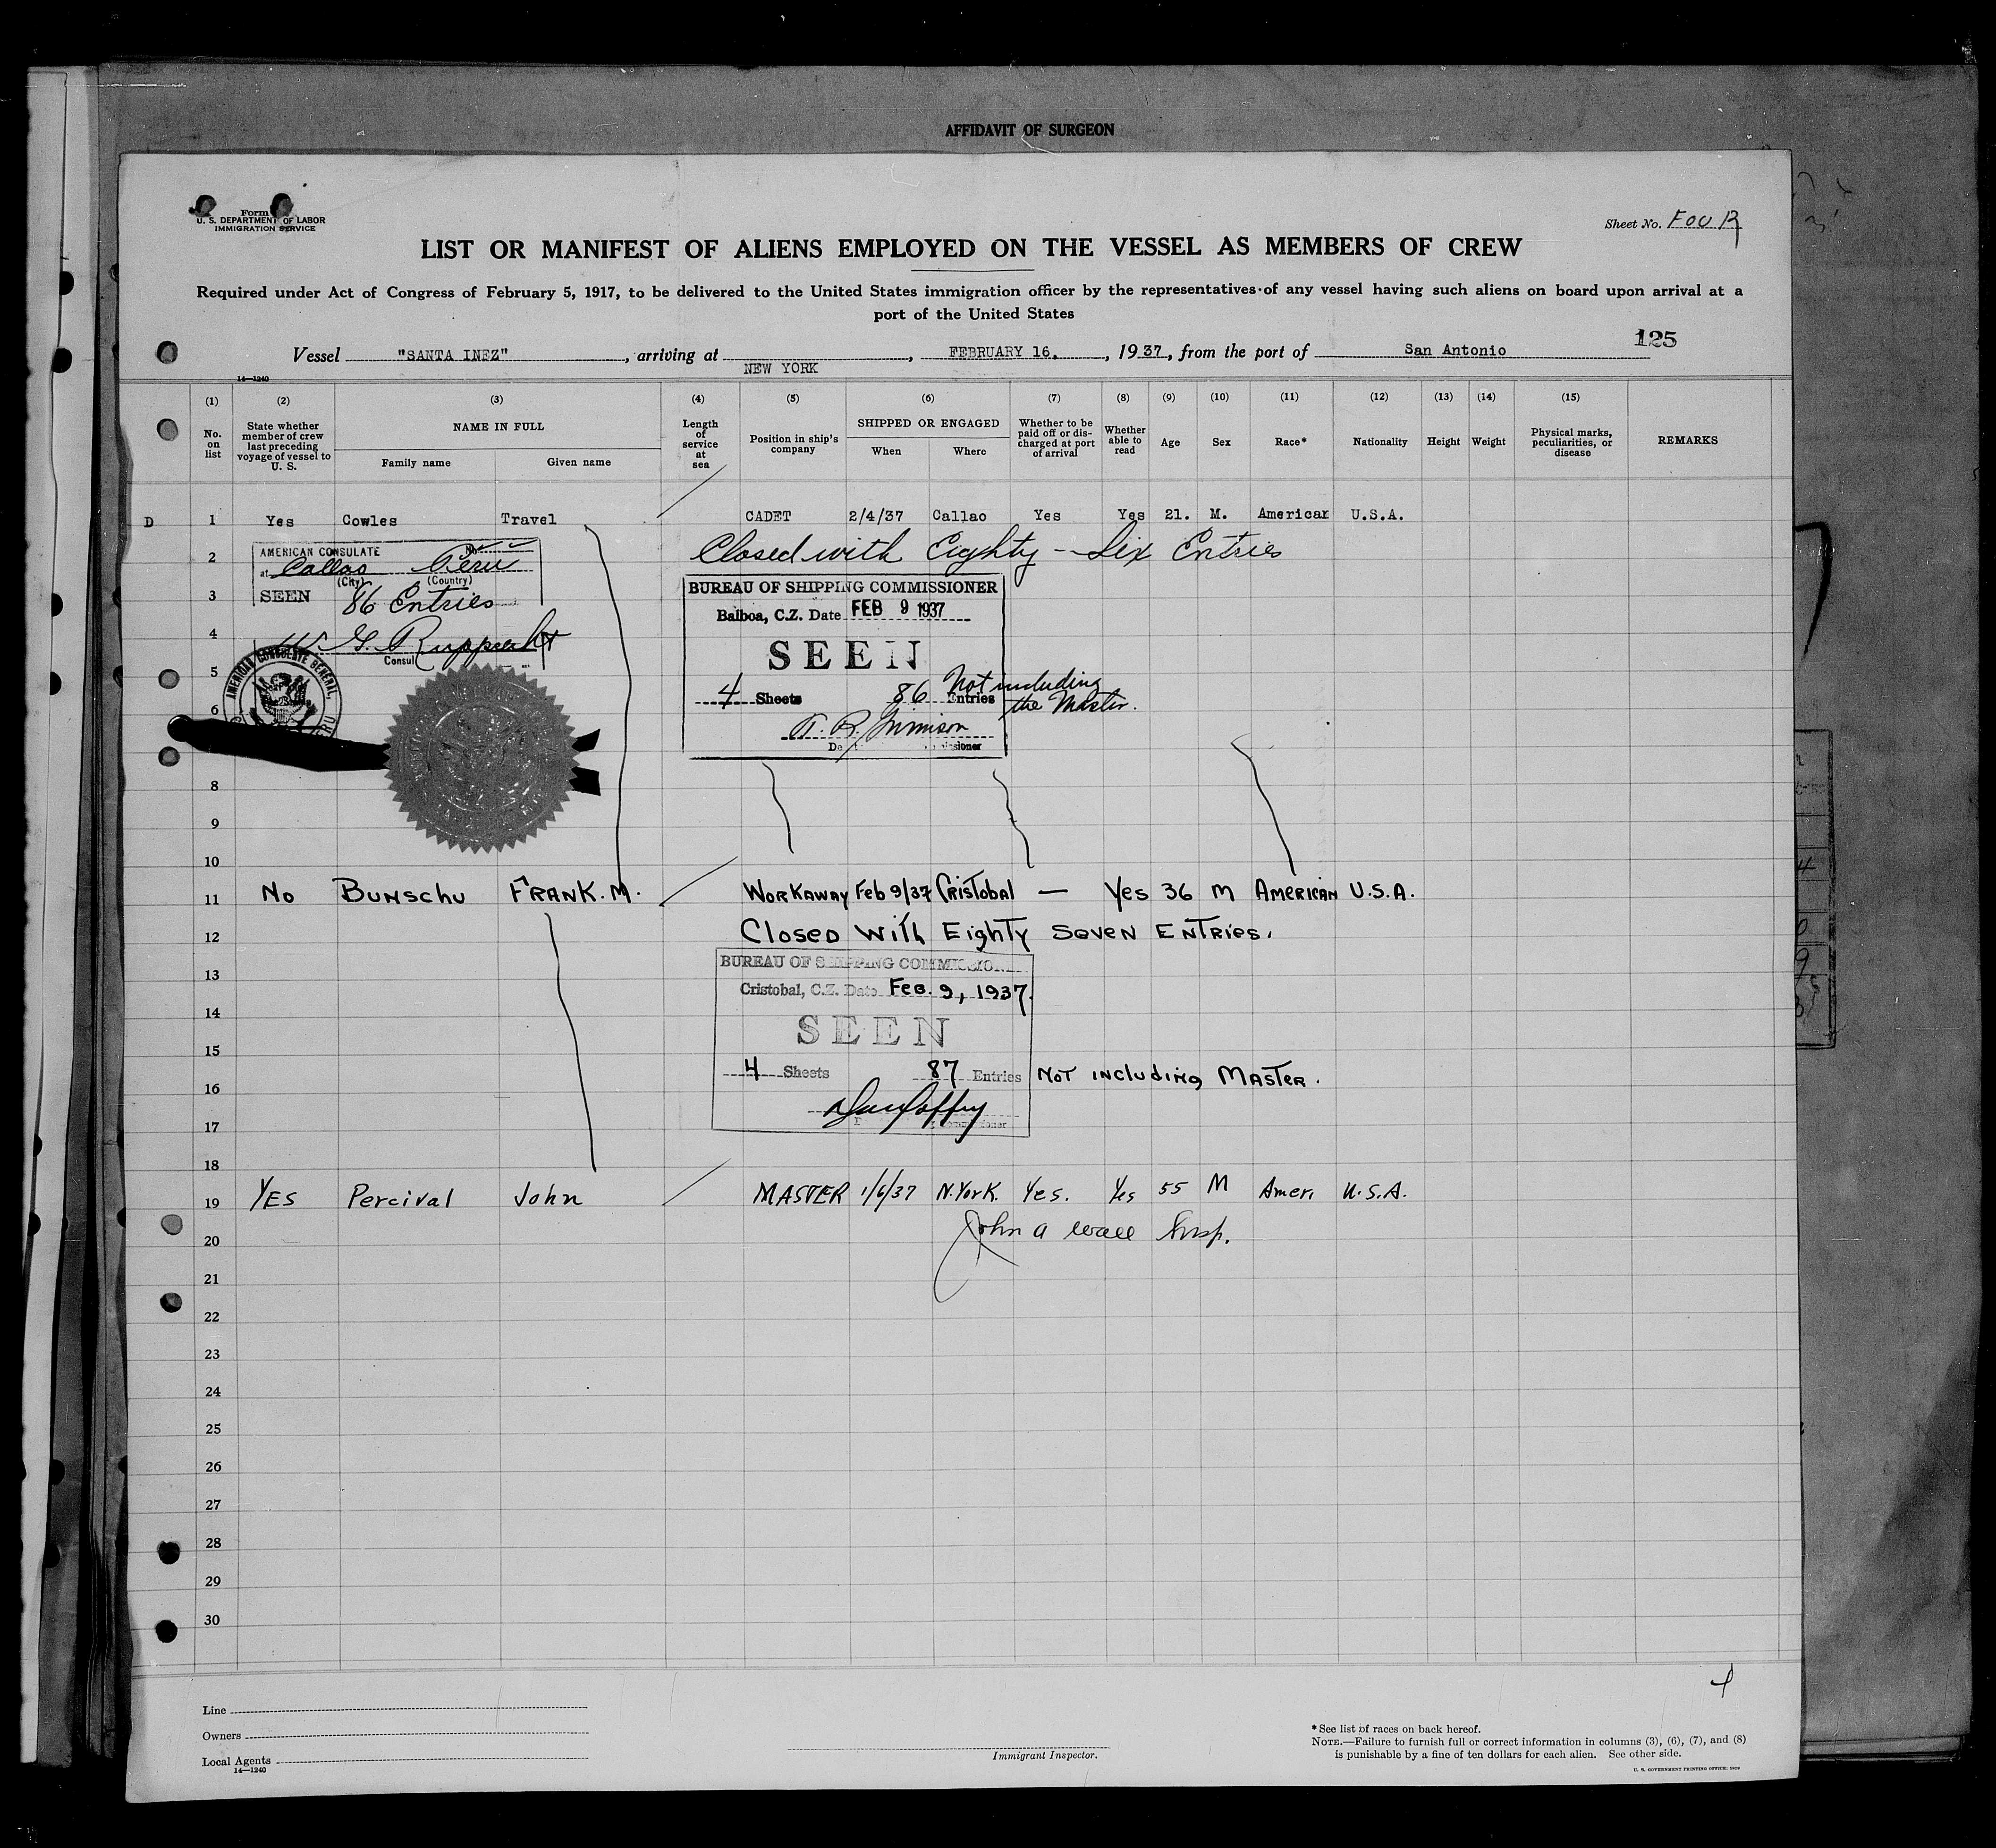 AFFIDAVIT OF SURGEON
Form
U. S. DEPARTMENT OF LABOR
IMMIGRATION SERVICE
Sheet No. FOUR
LIST OR MANIFEST OF ALIENS EMPLOYED ON THE VESSEL AS MEMBERS OF CREW
Required under Act of Congress of February 5, 1917, to be delivered to the United States immigration officer by the representatives of any vessel having such aliens on board upon arrival at a
port of the United States
125
Vessel "SANTA INEZ", arriving at NEW YORK, FEBRUARY 16, 1937, from the port of San Antonio
14—1240
(1) (2) (3) (4) (5) (6) (7) (8) (9) (10) (11) (12) (13) (14) (15)
No. on list
State whether member of crew last preceding voyage of vessel to U. S.
NAME IN FULL
Family name Given name
Length of service at sea
Position in ship's company
SHIPPED OR ENGAGED
When Where
Whether to be paid off or discharged at port of arrival
Whether able to read
Age Sex Race* Nationality Height Weight
Physical marks, peculiarities, or disease
REMARKS
D 1 Yes Cowles Travel CADET 2/4/37 Callao Yes Yes 21. M. American U.S.A.
2 Closed with Eighty-Six Entries
AMERICAN CONSULATE No
at Callao Peru
(City) (Country)
3 SEEN 86 Entries
BUREAU OF SHIPPING COMMISSIONER
Balboa, C.Z. Date FEB 9 1937
4 G. Ruppecht
Consul
SEEN
AMERICAN CONSULATE GENERAL,
5
6
4 Sheets 86 Entries Not including
the Master.
8
9
10
11 No Bunschu FRANK. M. WORKAWAY Feb 9/37 CRISTOBAL — Yes 36 M AMERICAN U.S.A.
12 CLOSED WITH EIGHTY SEVEN ENTRIES.
BUREAU OF SHIPPING COMMISSIO
13 Cristobal, C.Z. Date FEB. 9, 1937.
14 SEEN
15
4 Sheets 87 Entries NOT INCLUDING MASTER.
16
17
18
19 YES Percival John MASTER 1/6/37 N.York. Yes. Yes 55 M Amer. U.S.A.
John A Wall Insp.
20
21
22
23
24
25
26
27
28
29
30
4
Line
Owners
Local Agents
14—1240
Immigrant Inspector.
* See list of races on back hereof.
NOTE.—Failure to furnish full or correct information in columns (3), (6), (7), and (8)
is punishable by a fine of ten dollars for each alien. See other side.
U. S. GOVERNMENT PRINTING OFFICE: